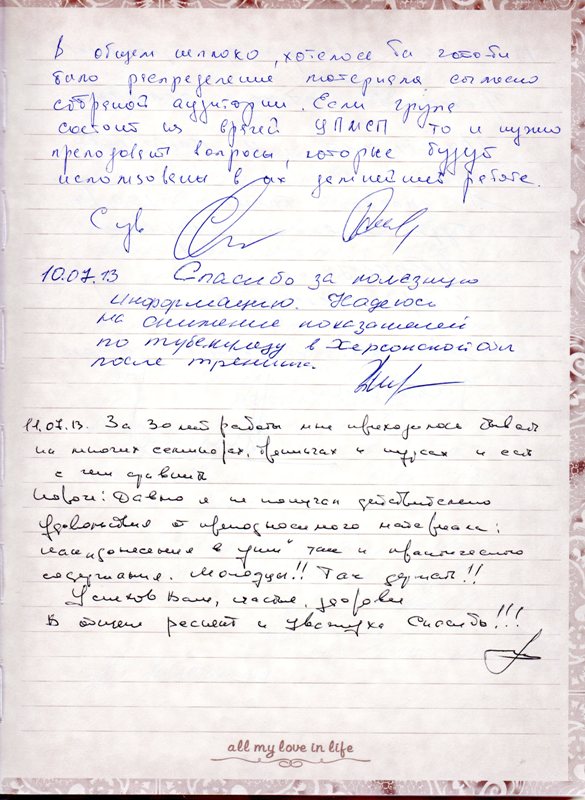 В общем неплохо, хотелось бы чтобы
было распределение материала согласно
собраной аудитории. Если група
состоит из врачей ЦПМСП то и нужно
преподовать вопросы, которые будут
использованы в их дальнейшей работе.
С ув
10.07.13 Спасибо за полезную
информацию. Надеюсь
на снижение показателей
по туберкулезу в Херсонской обл
после тренинга.
11.07.13. За 30 лет работы мне приходилось бывать
на многих семинарах, тренингах и курсах и есть
с чем сравнить
Давно я не получал действительно
удовольствия от преподносимого материала:
так и практического
содержания. Молодцы!! Так держать!!
Успехов Вам, счастья, здоровья
В общем респект и уважуха Спасибо!!!
all my love in life